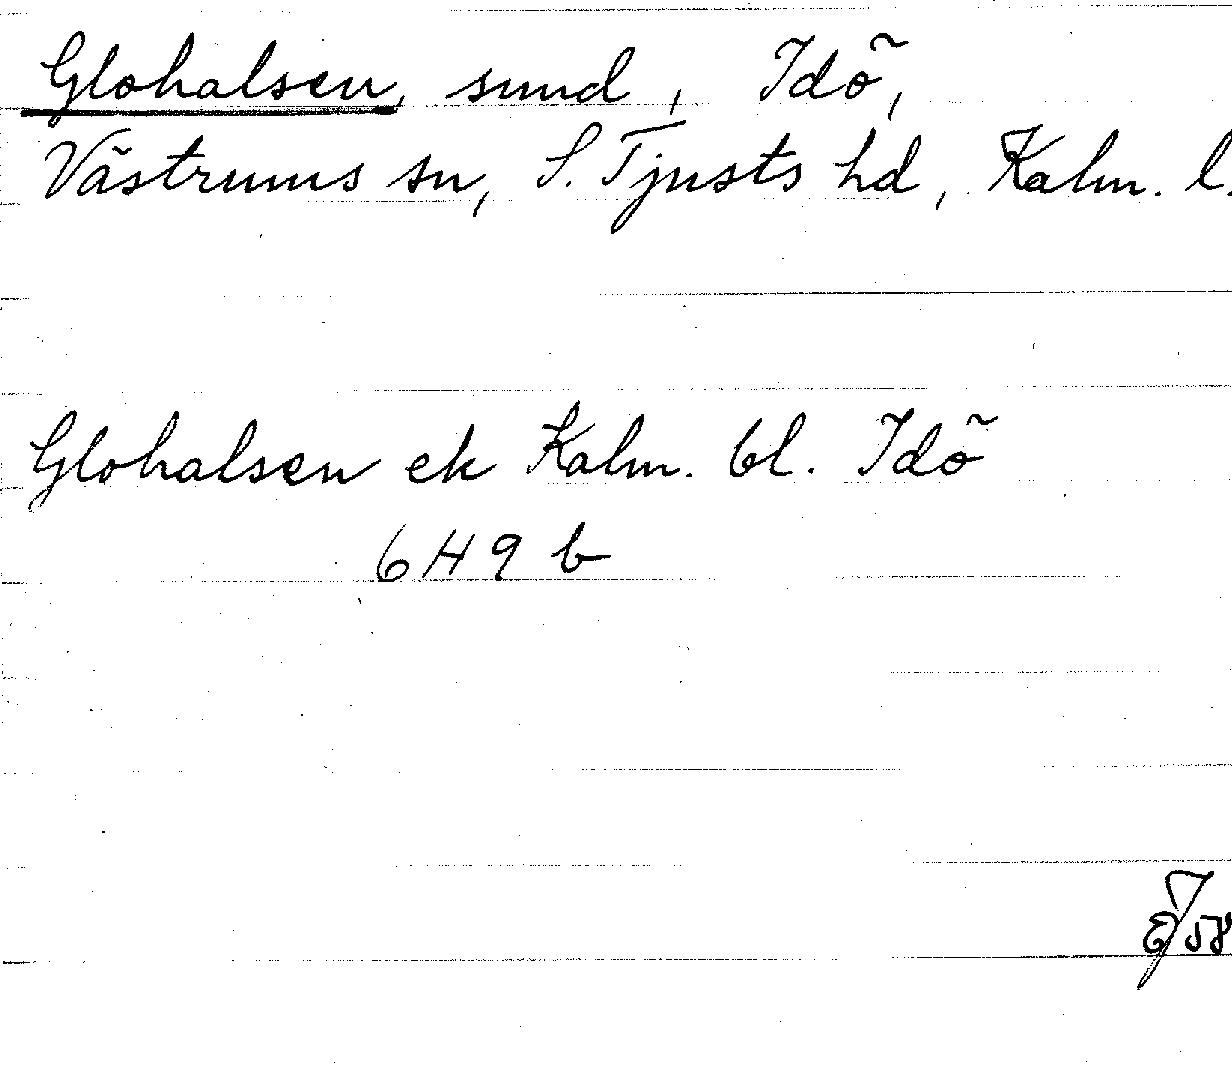 Glohalsen, sund, Idö,
Västrums sn, S. Tjusts hd, Kalm. l.
Glohalsen ek Kalm. bl. Idö
6H9b